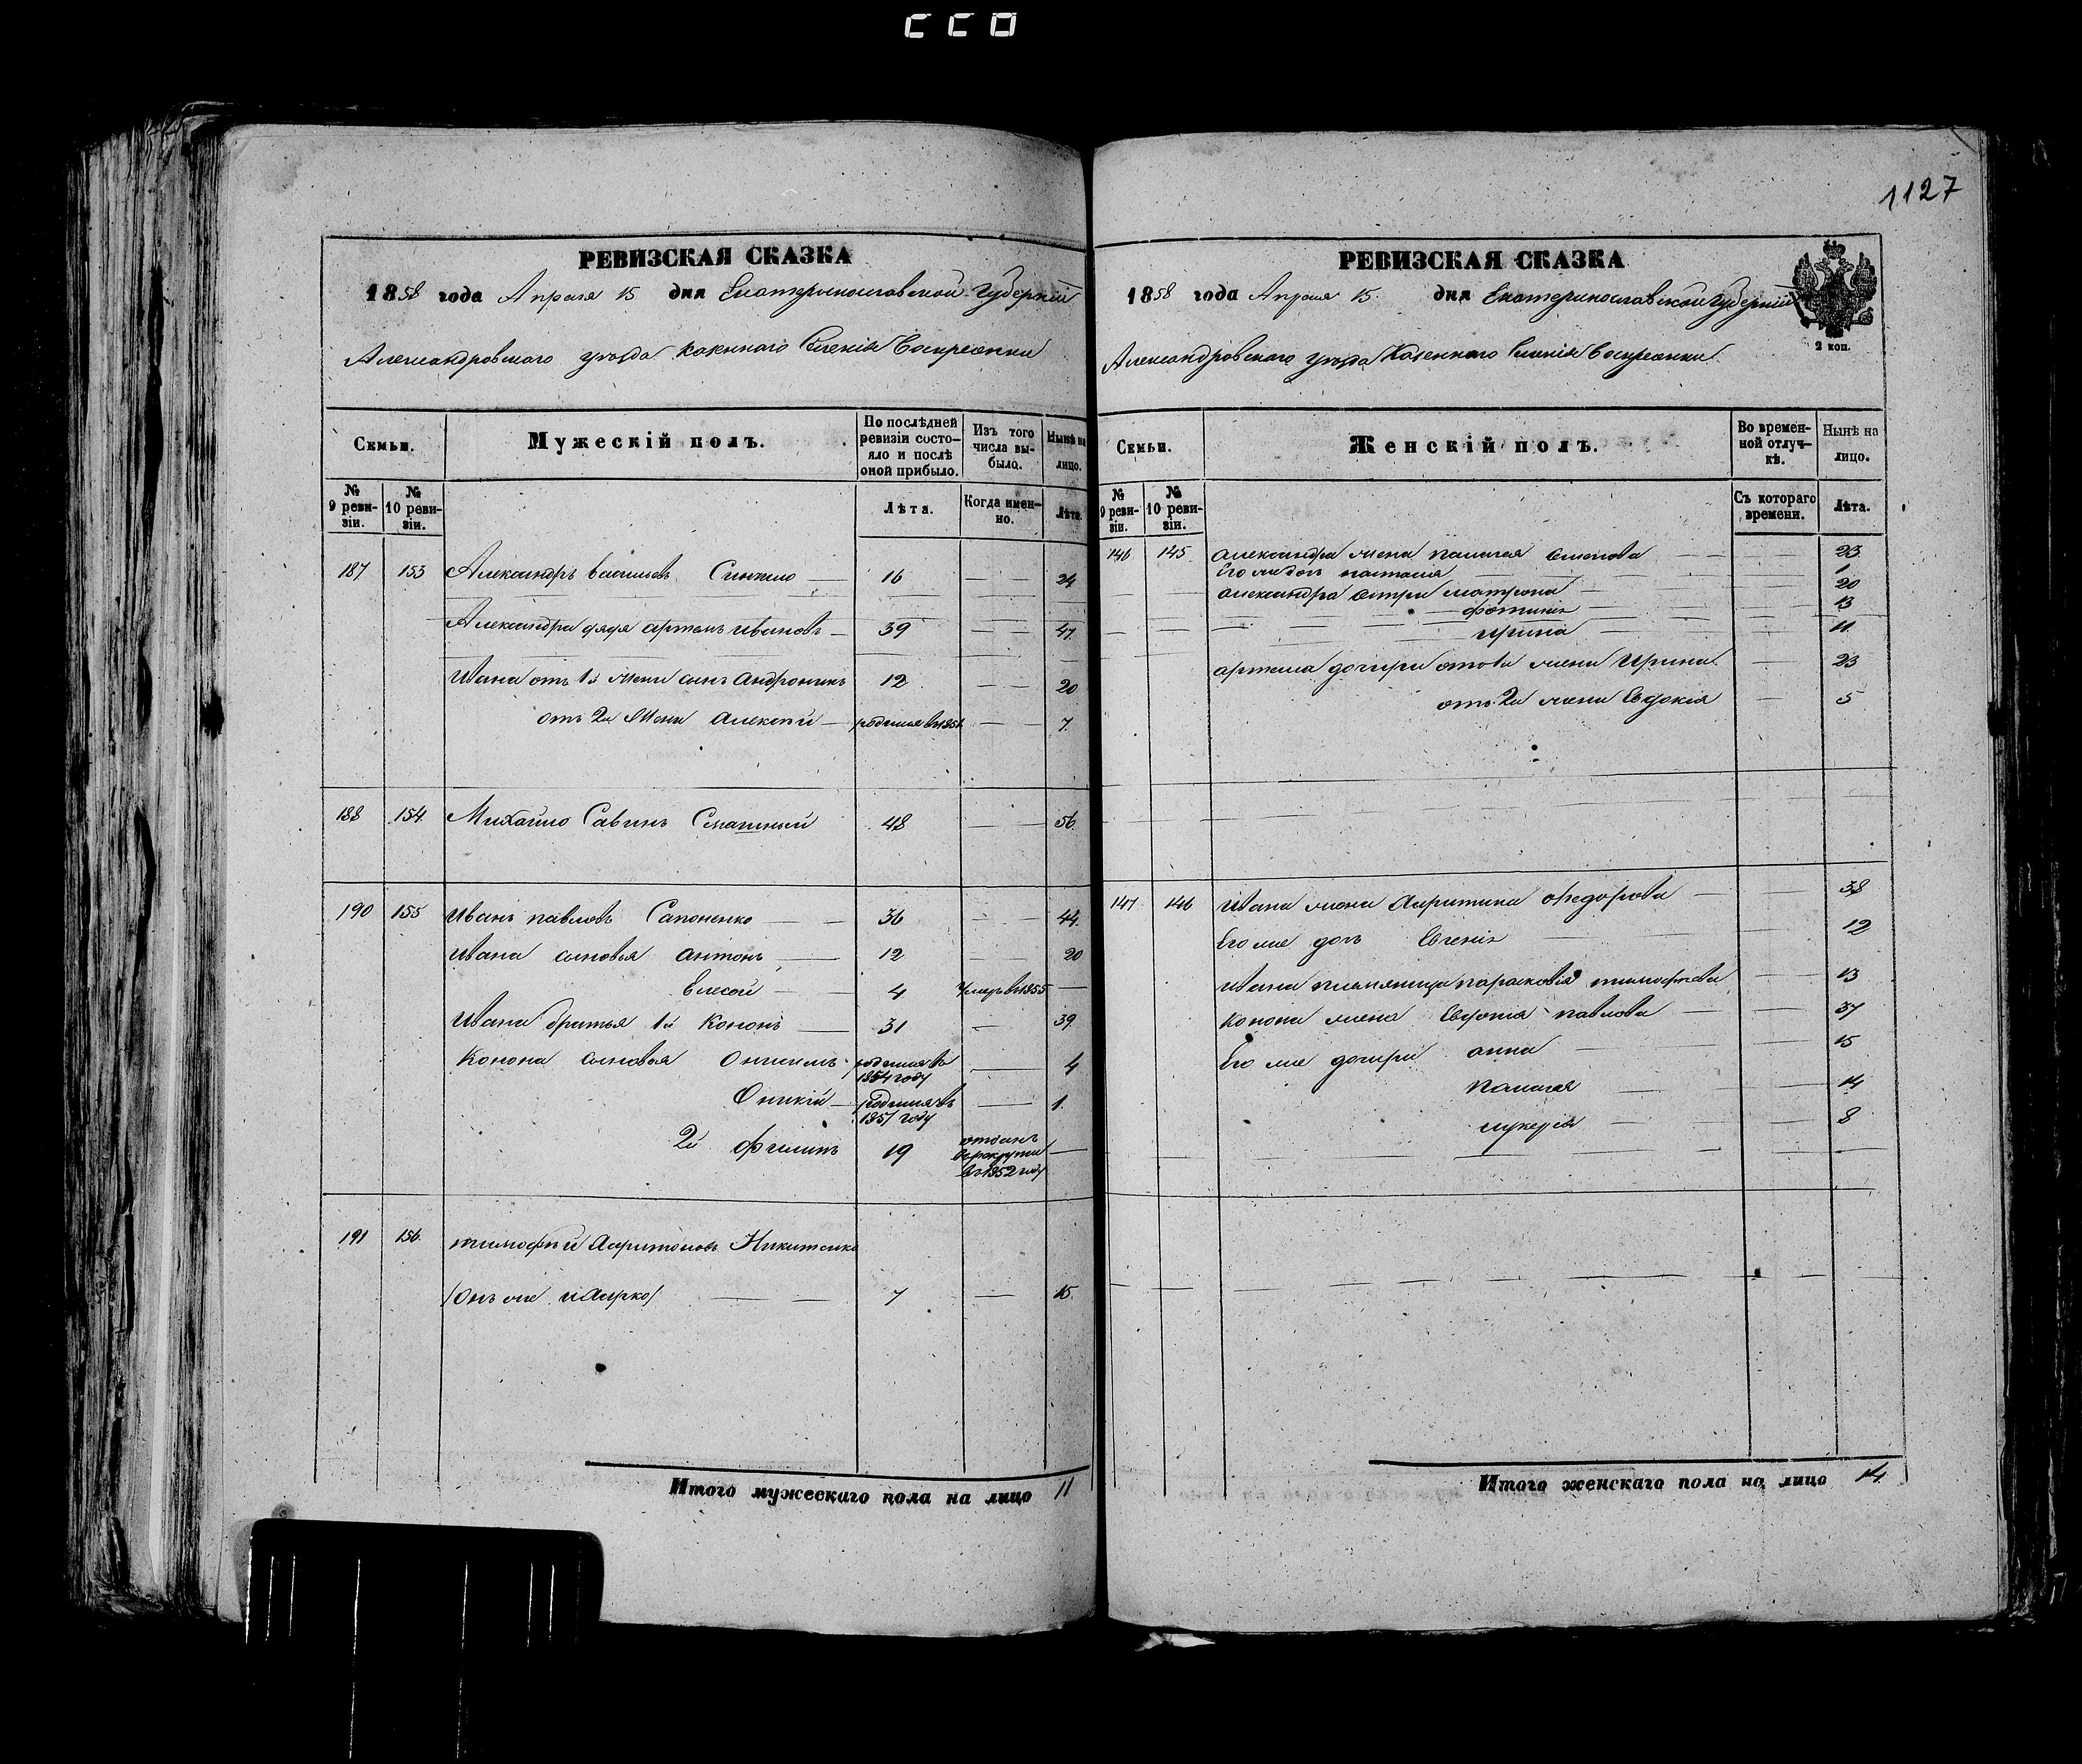 ССО
1127
РЕВИЗСКАЯ СКАЗКА
1858 года Апреля 15 дня Екатеринославской Губерніи
Александровского уезда Казеннаго Селенія Воскресенки
Семьи.
Мужескій полъ.
По послѣдней ревизіи состояло и послѣ оной прибыло.
Изъ того числа выбыло.
Нынѣ на лицо.
№ 9 ревизіи.
№ 10 ревизіи.
Лѣта.
Когда именно.
Лѣта.
187 153 Александръ васильевъ 16 — — 24
Александра дядя артемъ ивановъ — 39 — — 47
Ивана отъ 1й жены сынъ андроникъ 12 — — 20
отъ 2й жены алексей — родился въ 1851 — 7
188 154 Михайло Савинъ 48 — 56
190 155 Иванъ павловъ Сапоненко — 36 — — 44
Ивана сыновья антонъ — 12 — 20
Елесей — 4 Умеръ въ 1855 —
Ивана братья 1й Кононъ — 31 — 39
Конона сыновья Онисимъ родился въ 1854 году — 4
Оникій — родился въ 1857 году — 1
2й филипъ 19 отданъ в рекруты въ 1852 году —
191 156 тимофей Харитоновъ Никитенко
/Онъ же и / — — 7 — 15
Итого мужескаго пола на лицо 11
РЕВИЗСКАЯ СКАЗКА
1858 года Апреля 15 дня Екатеринославской Губерніи
2 коп.
Александровского уезда Казеннаго Селенія Воскресенки
Семьи.
Женскій полъ.
Во временной отлучкѣ.
Нынѣ на лицо.
№ 9 ревизіи.
№ 10 ревизіи.
Съ котораго времени.
Лѣта.
146 145 александра жена палагея семенова — — 23
Его же дочь настасия — 1
александра сестры матрона — 20
фотинія — 13
Ирина — 11
артема дочери отъ 1й жены Ирина — 23
отъ 2й жены Евдокія — 5
147 146 Ивана жена Харитина федорова — — 38
Его же дочь Евгенія — 12
Ивана племяница парасковія тимофеева — 13
Конона жена павлова — — 37
Его же дочери анна — — 15
Палагея — — 14
лукерія — — 8
Итого женскаго пола на лицо 14